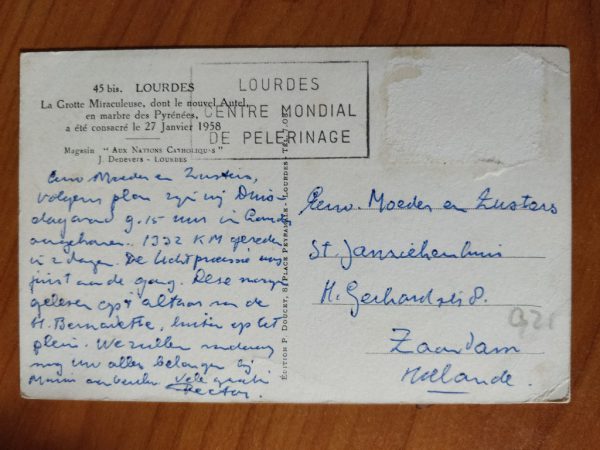 45 bis. LOURDES
La Grotte Miraculeuse, dont le nouvel Autel,
en marbre des Pyrénées,
a été consacré le 27 Janvier 1958
Magasin "AUX NATIONS CATHOLIQUES"
J. Denevers - LOURDES
LOURDES
CENTRE MONDIAL
DE PELERINAGE
Eerw. Moeder en Zusters,
volgens plan zijn wij Dins-
dagavond 9.15 uur in
aangekomen. 1332 KM gereden
in 2 dagen. De lichtprocessie was
juist aan de gang. Deze morgen
gelezen op 't altaar van de
H. Bernadette, buiten op het
plein. We zullen
nog uw aller belangen bij
Maria aanbevelen. Vele
Rector.
ÉDITION P. DOUCET, 8, PLACE PEYRAMALE - LOURDES - TÉL. 7.08
Eerw. Moeder en Zusters
St. Jansziekenhuis
H. Gerhardstr. 8.
Zaandam
Hollande.